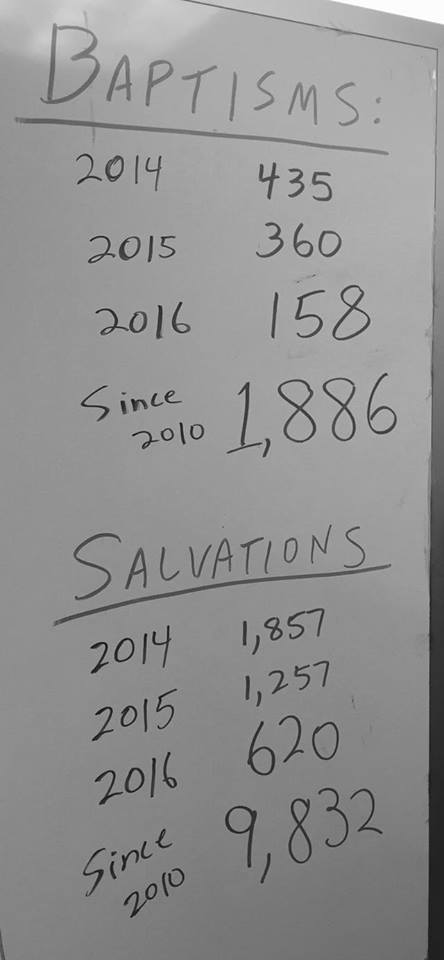 BAPTISMS:
2014 435
2015 360
2016 158
Since 2010 1,886
SALVATIONS
2014 1,857
2015 1,257
2016 620
Since 2010 9,832